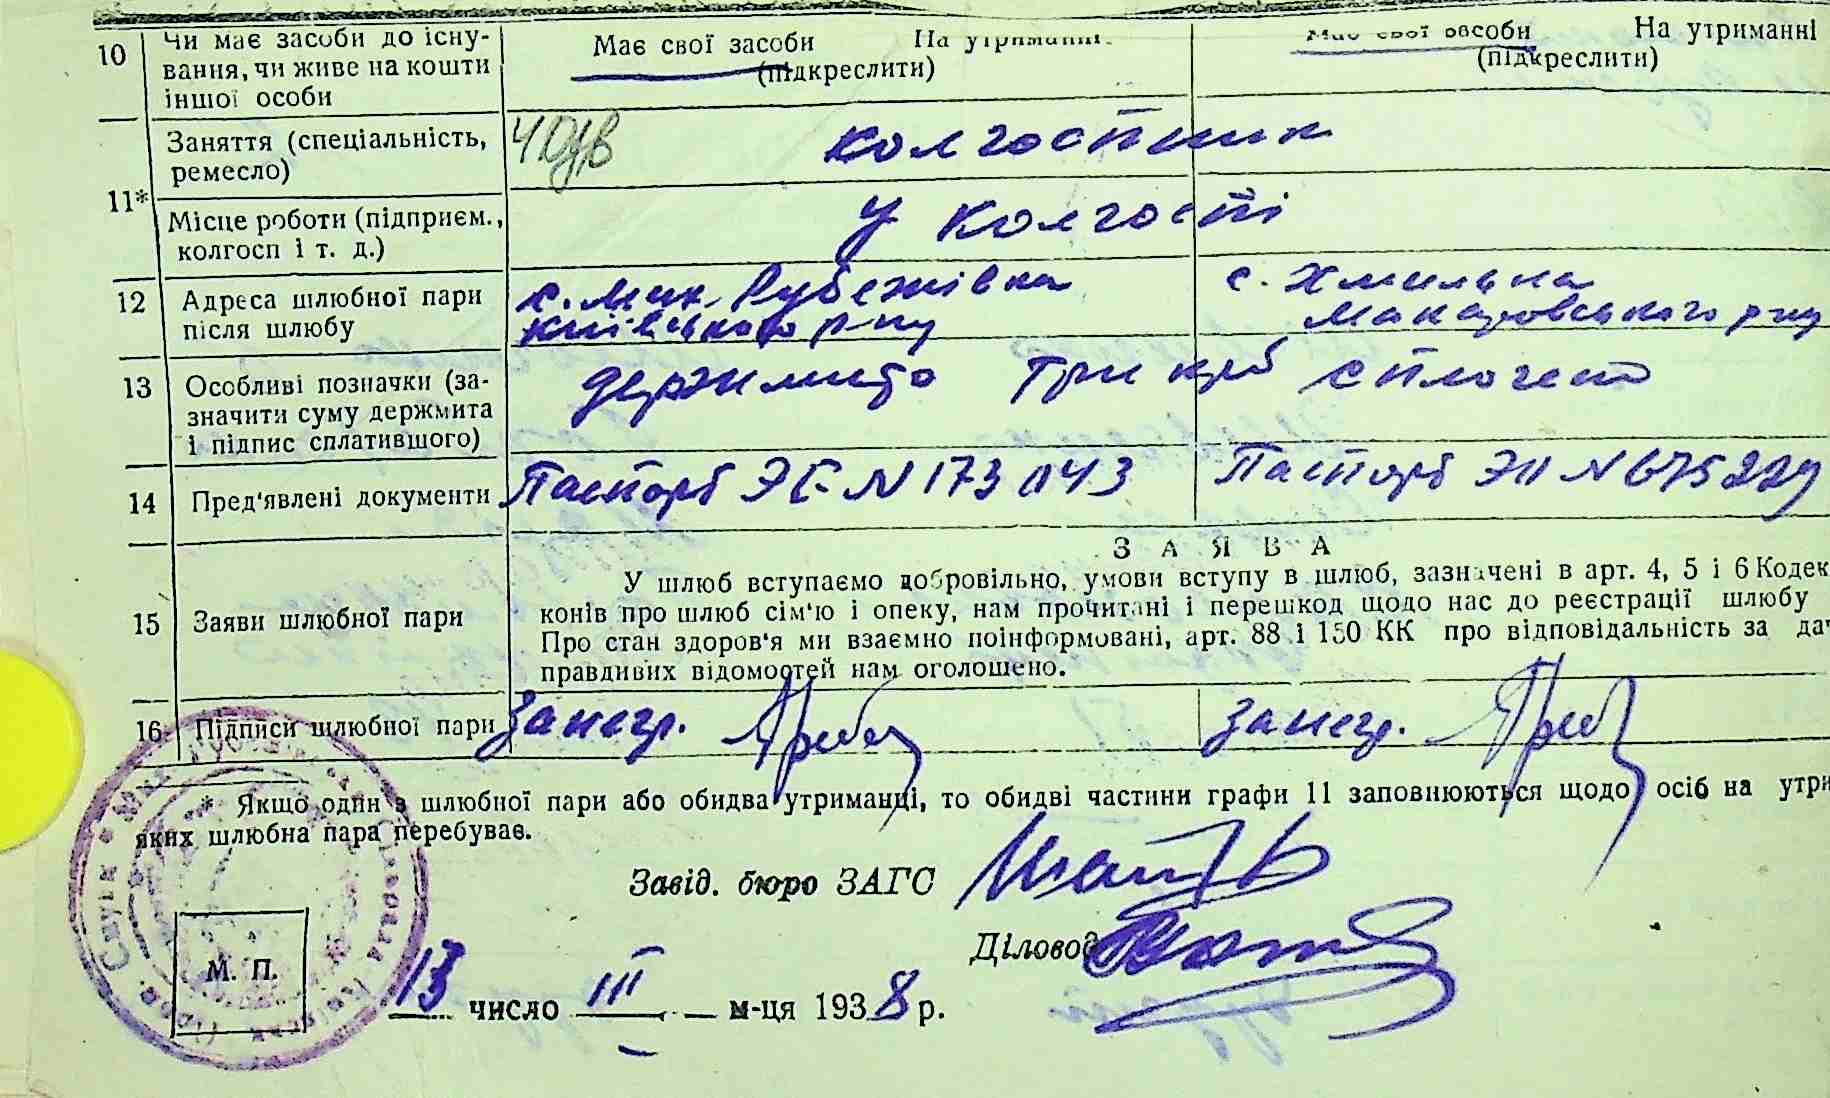 10
Чи має засоби до існу-
вання, чи живе на кошти
іншої особи
Має свої засоби На утриманні
(підкреслити)
Має свої засоби На утриманні
(підкреслити)
11*
Заняття (спеціальність,
ремесло)
колгоспник
Місце роботи (підприєм.,
колгосп і т. д.)
у колгоспі
12
Адреса шлюбної пари
після шлюбу
с. Мик. Рубежівка
київського р-ну
с. Хмильна
Макаровського р-ну
13
Особливі позначки (за-
значити суму держмита
і підпис сплатившого)
держмито три крб сплочено
14
Пред'явлені документи
Паспорт ЭБ N 173043
Паспорт ЭП N 675229
15
Заяви шлюбної пари
ЗАЯВА
У шлюб вступаємо добровільно, умови вступу в шлюб, зазначені в арт. 4, 5 і 6 Кодек
конів про шлюб сім'ю і опеку, нам прочитані і перешкод щодо нас до реєстрації шлюбу
Про стан здоров'я ми взаємно поінформовані, арт. 88 і 150 КК про відповідальність за да
правдивих відомостей нам оголошено.
16
Підписи шлюбної пари
* Якщо один з шлюбної пари або обидва утриманці, то обидві частини графи 11 заповнюються щодо осіб на утри
яких шлюбна пара перебуває.
Завід. бюро ЗАГС
Діловод
М. П.
13 число III м-ця 1938 р.